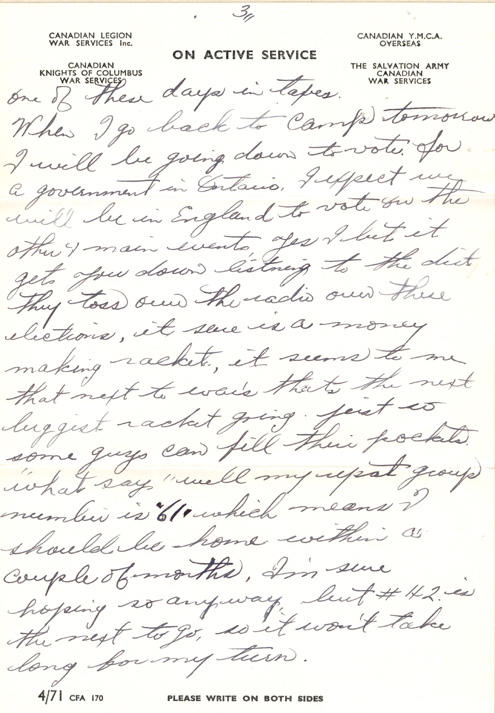 3//
CANADIAN LEGION
WAR SERVICES Inc.
CANADIAN
KNIGHTS OF COLUMBUS
WAR SERVICES
ON ACTIVE SERVICE
CANADIAN Y.M.C.A.
OVERSEAS
THE SALVATION ARMY
CANADIAN
WAR SERVICES
one of these days in tapes.
When I go back to Camp tomorrow
I will be going down to vote. for
a government in Ontario. I expect we
will be in England to vote on the
other & main events, yes I bet it
gets you down listning to the dirt
they toss over the radio over these
elections, it sure is a money
making racket, it seems to me
that next to wars thats the next
biggist racket going. jest so
some guys can fill their pockets.
"what say" well my repat group
number is "61" which means I
should be home within a
couple of months, I'm sure
hoping so anyway, but #42 is
the next to go, so it won't take
long for my turn.
4/71 CFA 170
PLEASE WRITE ON BOTH SIDES